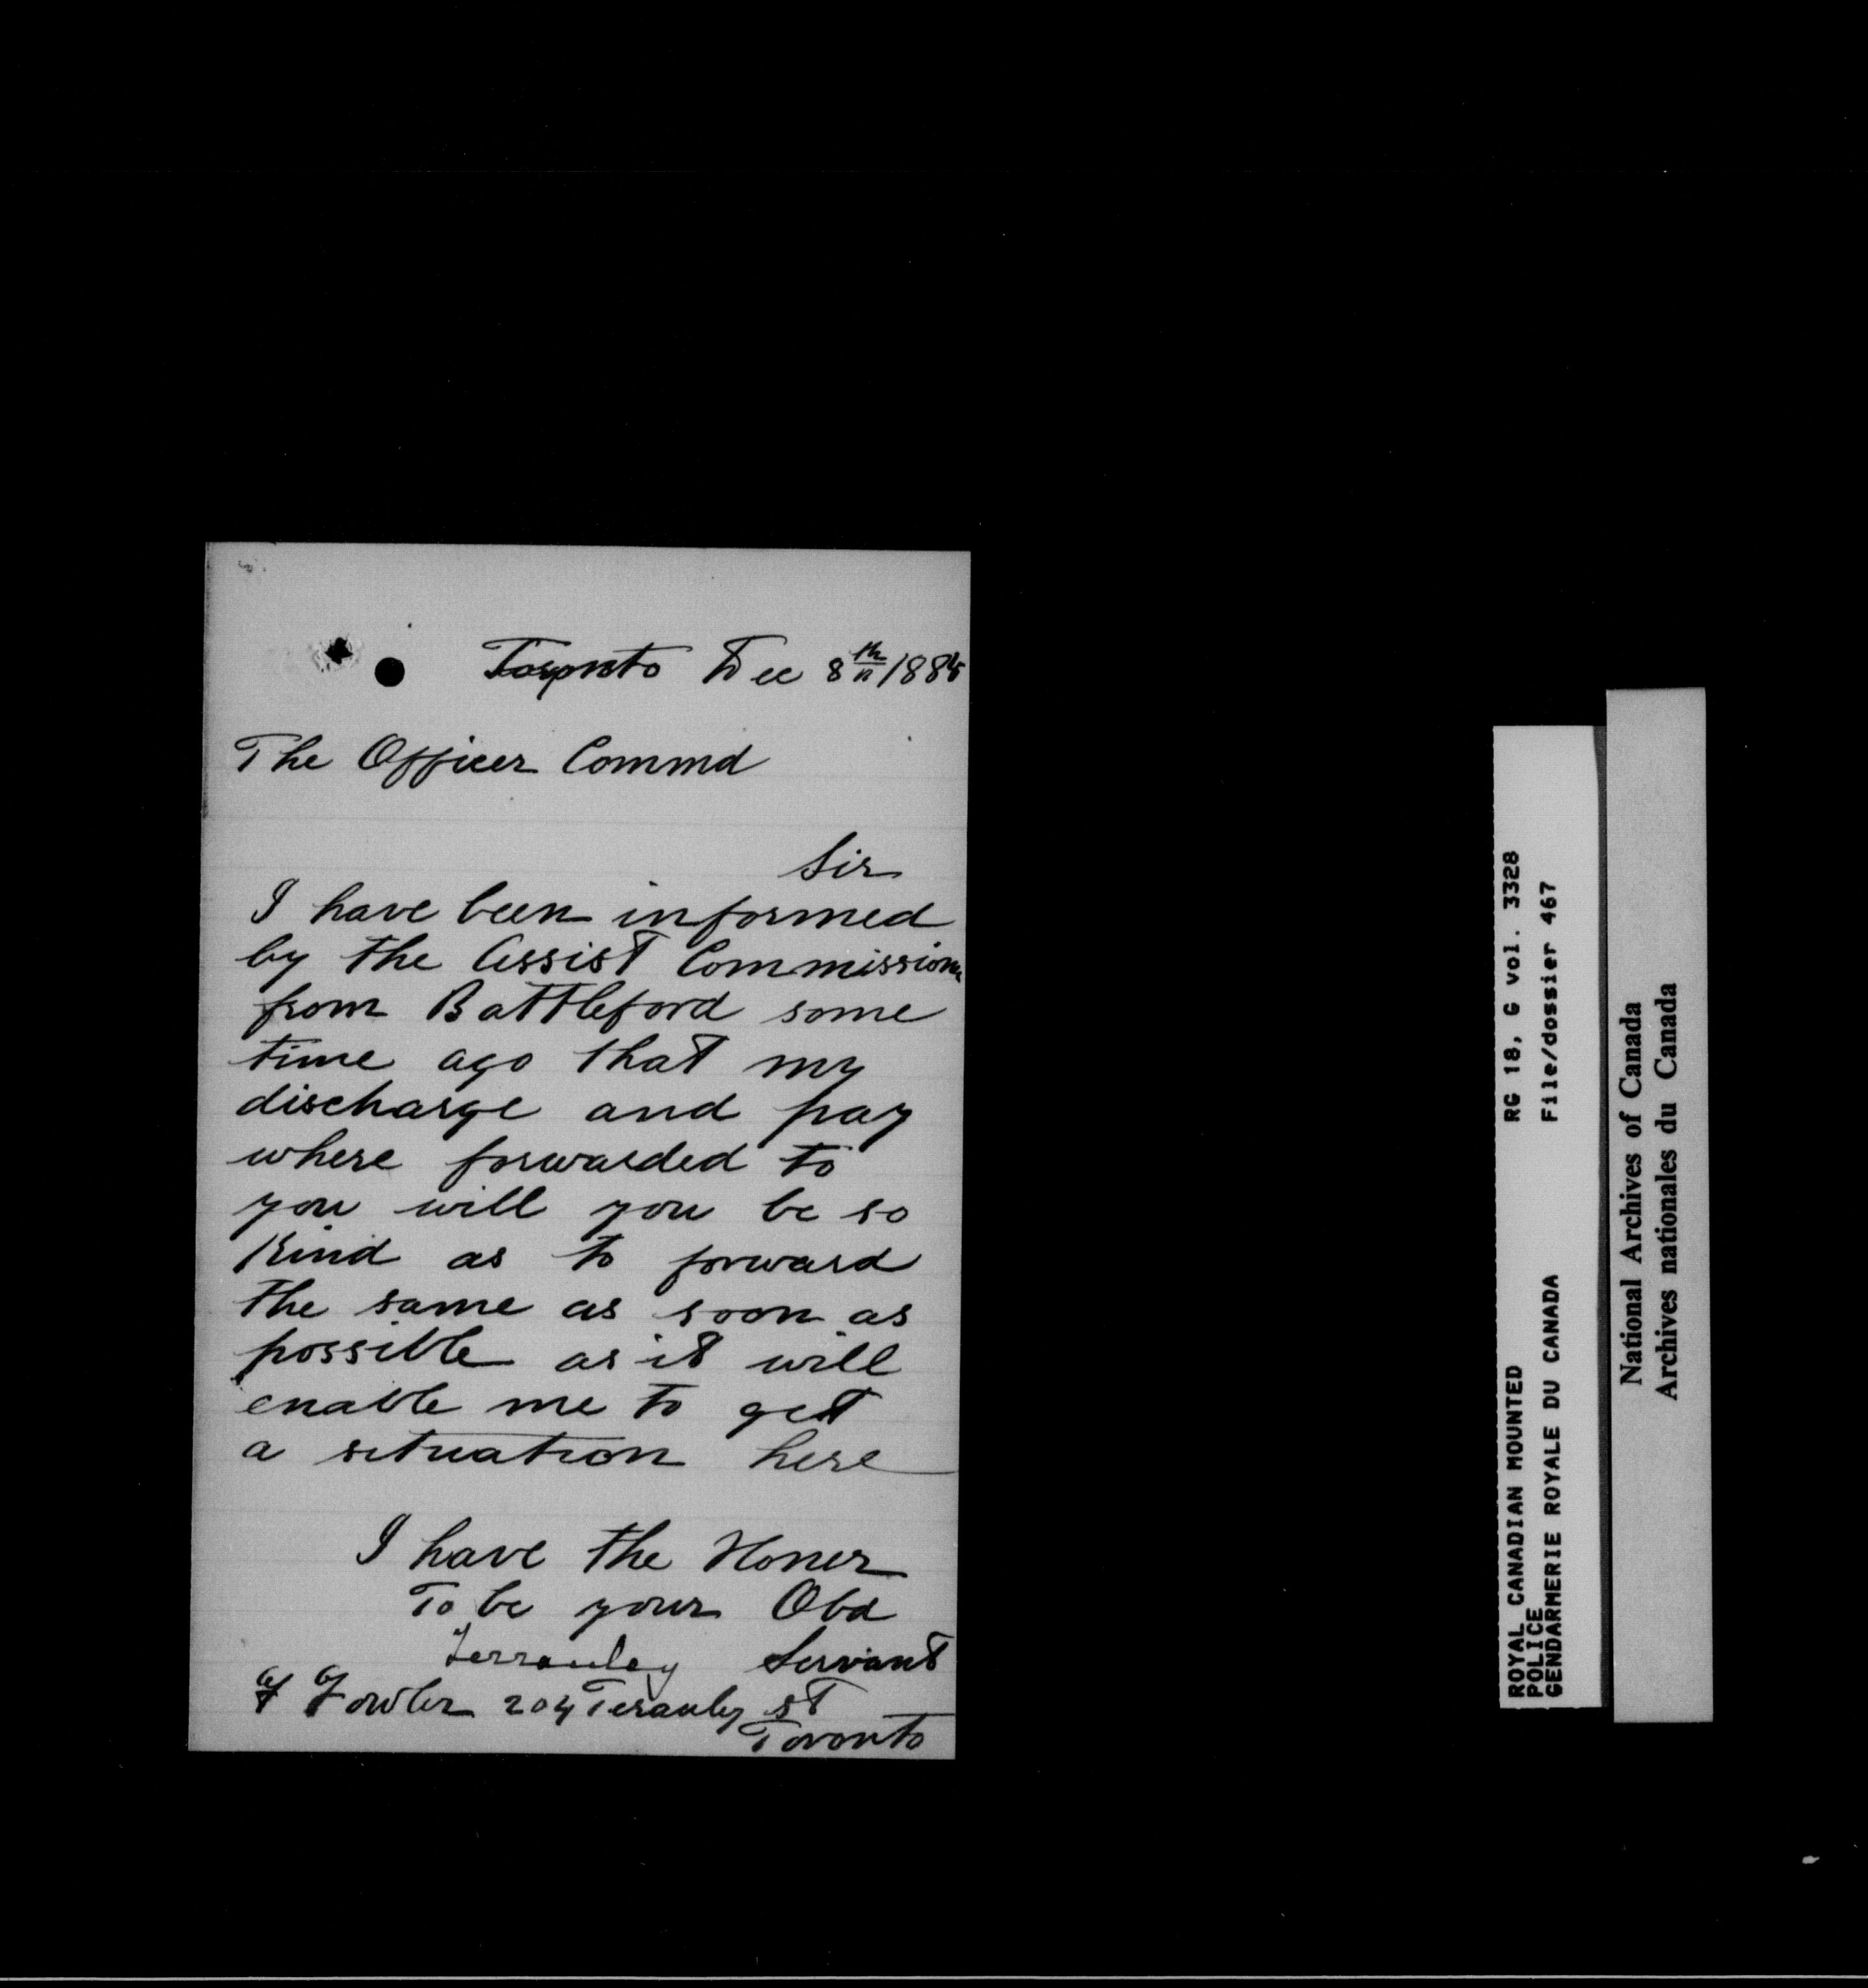 Toronto Dec 8th 1885
The Officer Commd
Sir
I have been informed
by the Assist Commissioner
from Battleford some
time ago that my
discharge and pay
where forwarded to
you will you be so
Kind as to forward
the same as soon as
possible as it will
enable me to get
a situation here
I have the Honer
To be your Obd
Terrauley Servant
Fowler 204 Terauley st
Toronto
ROYAL CANADIAN MOUNTED RG 18, G vol. 3328
POLICE File/dossier 467
GENDARMERIE ROYALE DU CANADA
National Archives of Canada
Archives nationales du Canada